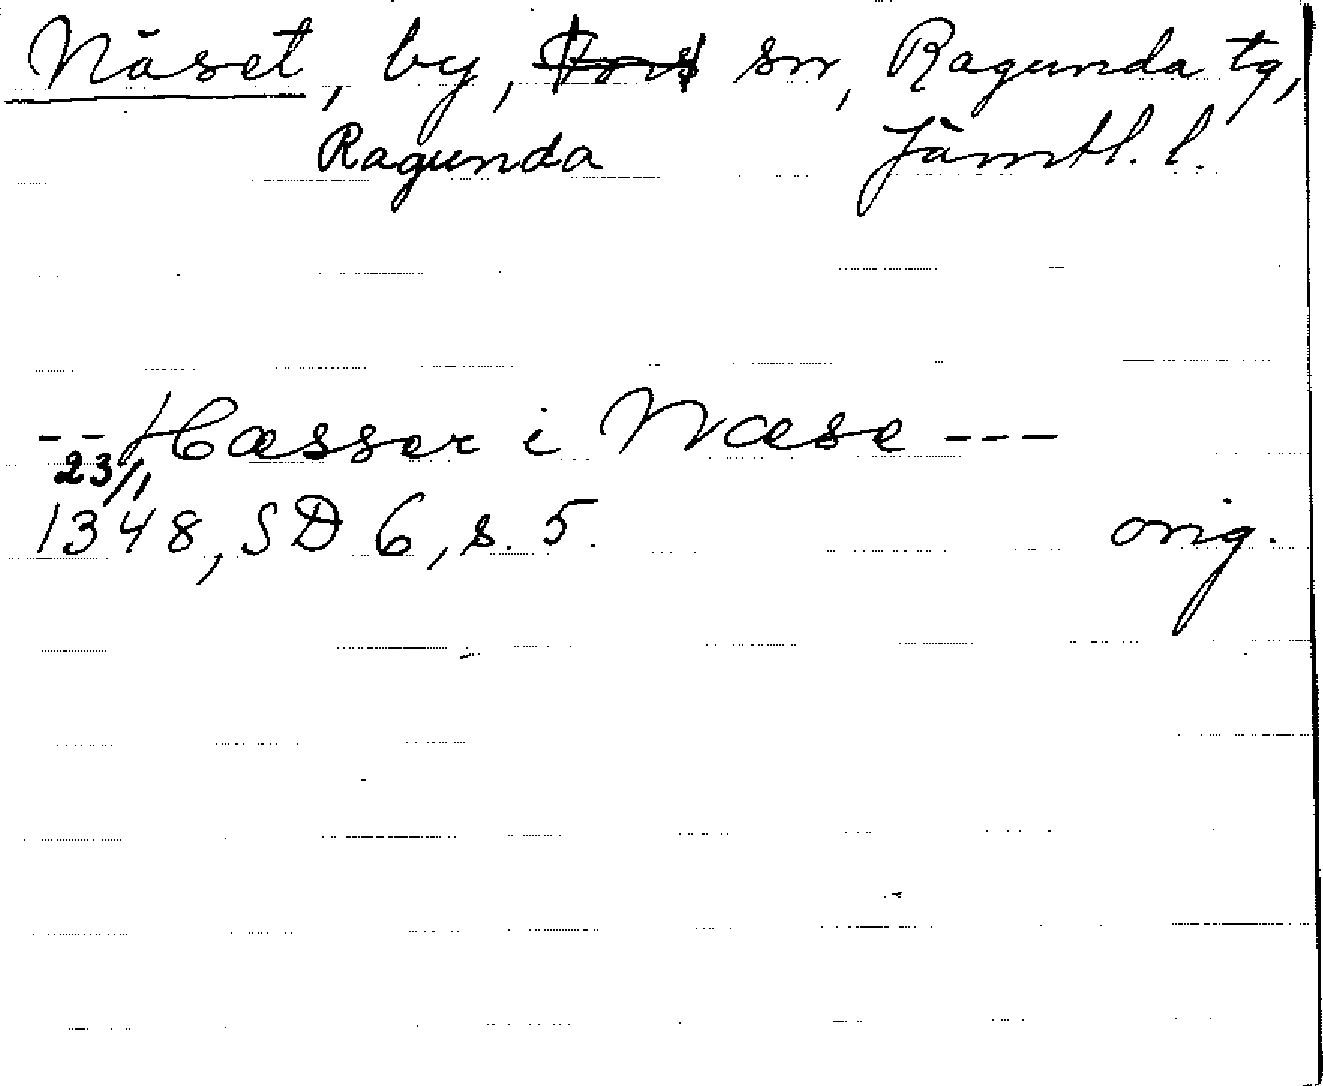 Näset, by, Fors sn, Ragunda tg,
Ragunda Jämtl. l.
-- Hæsser i Næse ---
23/1
1348, SD 6, s. 5. orig.